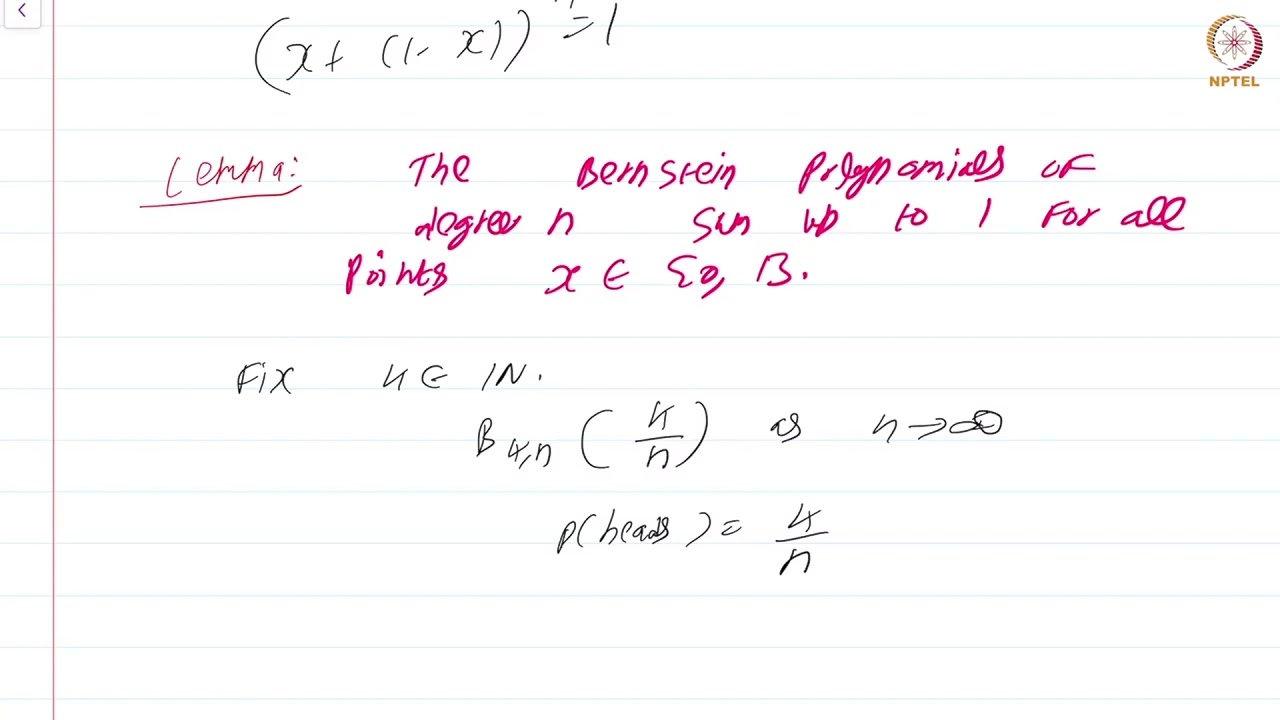 (x + (1 - x))^n = 1
NPTEL
Lemma: The Bernstein Polynomials of
degree n sum up to 1 for all
points x ∈ [0, 1].
Fix k ∈ IN.
B_{k,n} (k/n) as n → ∞
P(heads) = k/n